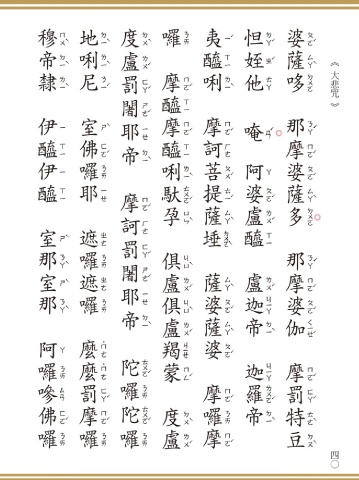 《大悲咒》
婆薩哆 那摩婆薩多 那摩婆伽 摩罰特豆
怛姪他 唵 阿婆盧醯 盧迦帝 迦羅帝
夷醯唎 摩訶菩提薩埵 薩婆薩婆 摩囉摩
囉 摩醯摩醯唎馱孕 俱盧俱盧羯蒙 度盧
度盧罰闍耶帝 摩訶罰闍耶帝 陀囉陀囉
地唎尼 室佛囉耶 遮囉遮囉 麼麼罰摩囉
穆帝隸 伊醯伊醯 室那室那 阿囉嘇佛囉
四〇